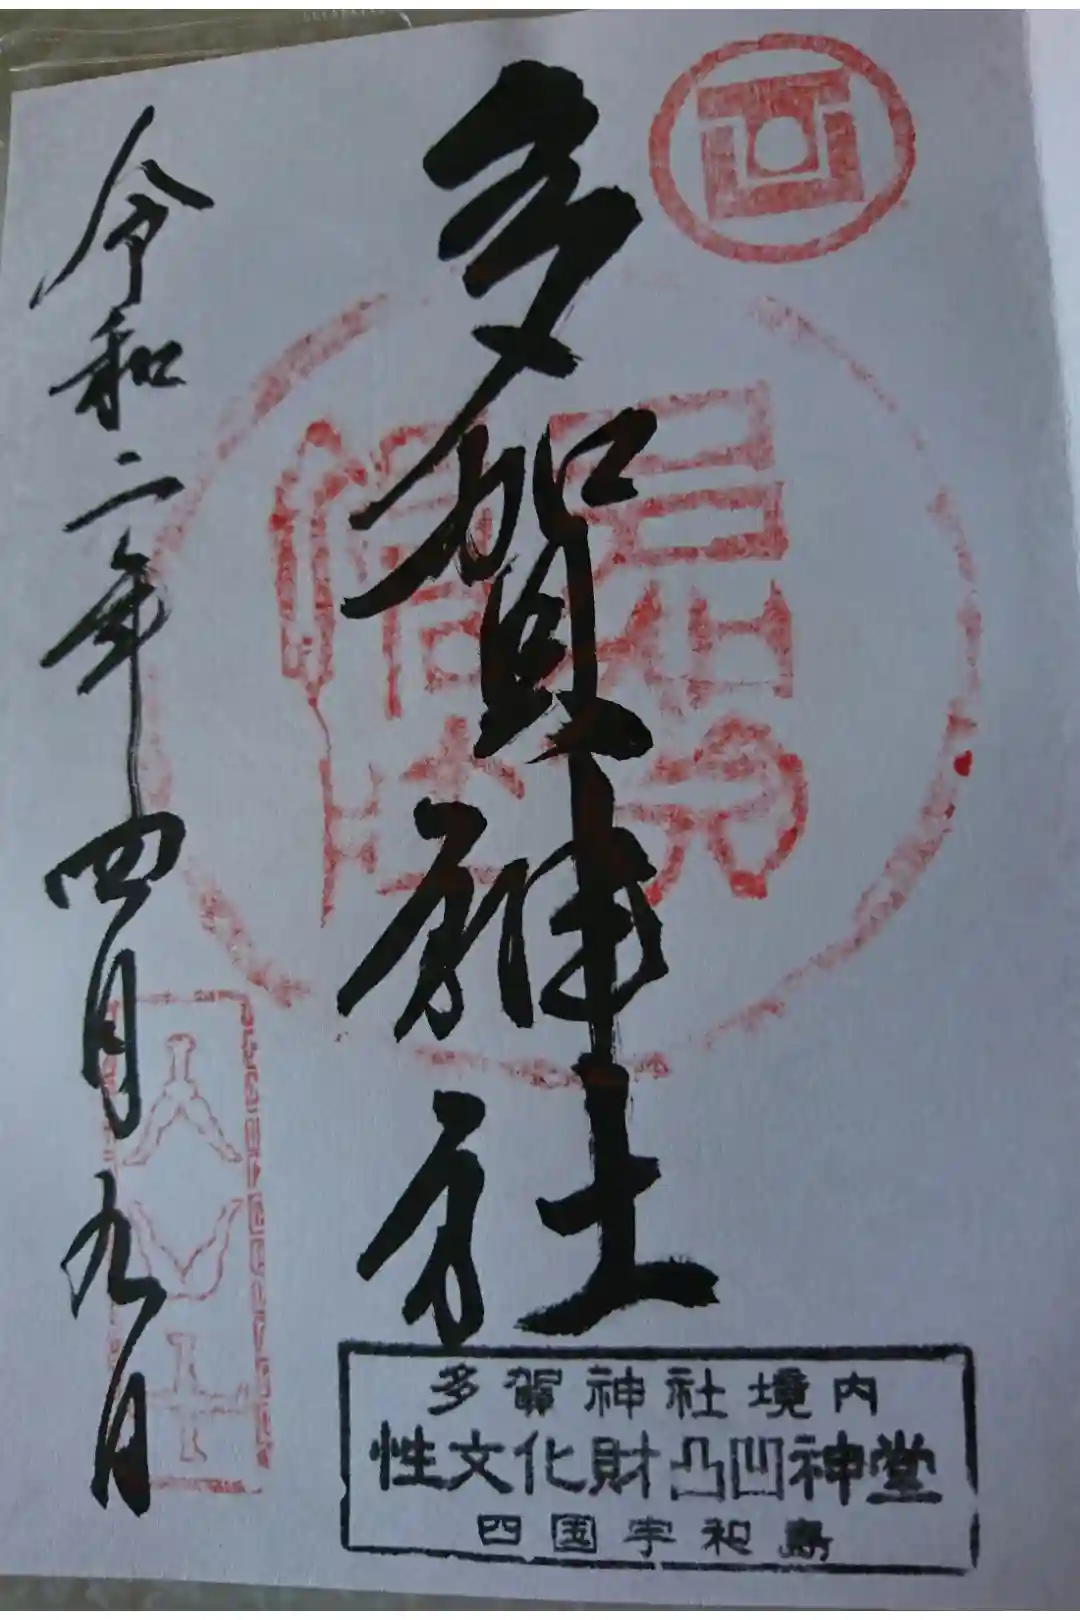 多賀神社
令和二年四月九日
多賀神社境内
性文化財凸凹神堂
四国宇和島